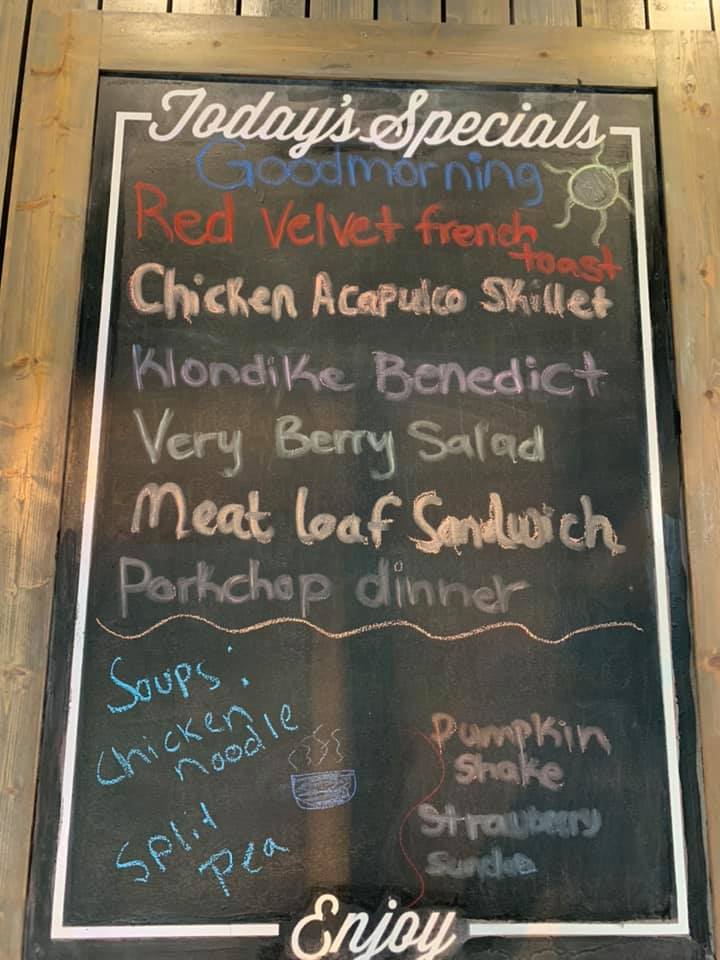 Today's Specials
Goodmorning
Red Velvet french
toast
Chicken Acapulco Skillet
Klondike Benedict
Very Berry Salad
Meat loaf Sandwich
Porkchop dinner
Soups:
Chicken
noodle
Split
Pea
Pumpkin
Shake
Strawberry
Sundae
Enjoy